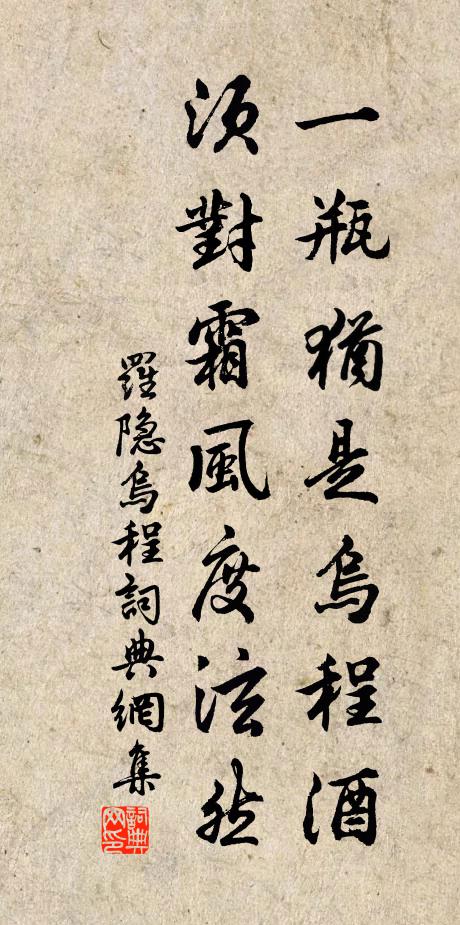 一瓶猶是烏程酒
須對霜風度泫然
羅隐烏程詞典網集
詞典网印